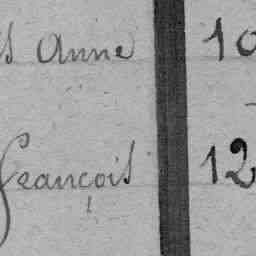 s Anne 10
François 12